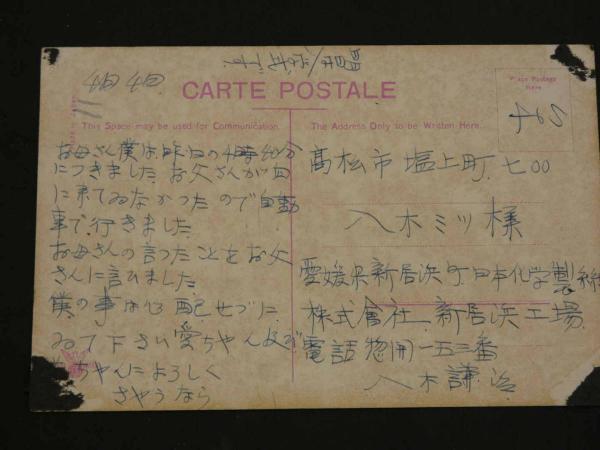 4月4日
CARTE POSTALE
This Space may be used for Communication.
The Address Only to be Written Here.
Place Postage
Here
お母さん僕は昨日の4時40分
につきました お父さんが
に来てゐなかつたので自動
車で行きました
お母さんの言つたことをお父
さんに言ひました
僕の事は心配せづに
ゐて下さい 愛ちやん
ちやんによろしく
さやうなら
高松市塩上町七00
八木ミツ様
愛媛県新居浜町日本化学製
株式會社新居浜工場
電話惣開一五三番
八木謙治